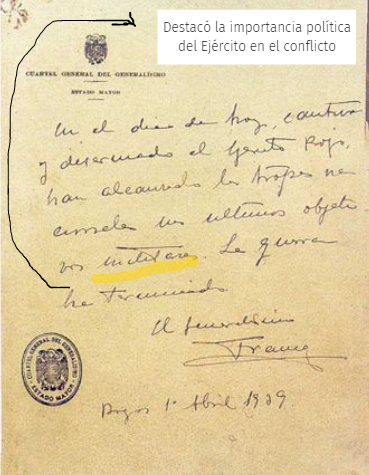 Destacó la importancia política
del Ejército en el conflicto
CUARTEL GENERAL DEL GENERALÍSIMO
ESTADO MAYOR
En el dia de hoy, cautivo
y desarmado el Ejercito Rojo,
han alcanzado las tropas na-
cionales sus ultimos objeti-
vos militares. La guerra
ha terminado
El Generalisimo
Franco
Burgos 1º Abril 1939
CUARTEL GENERAL DEL GENERALÍSIMO
ESTADO MAYOR